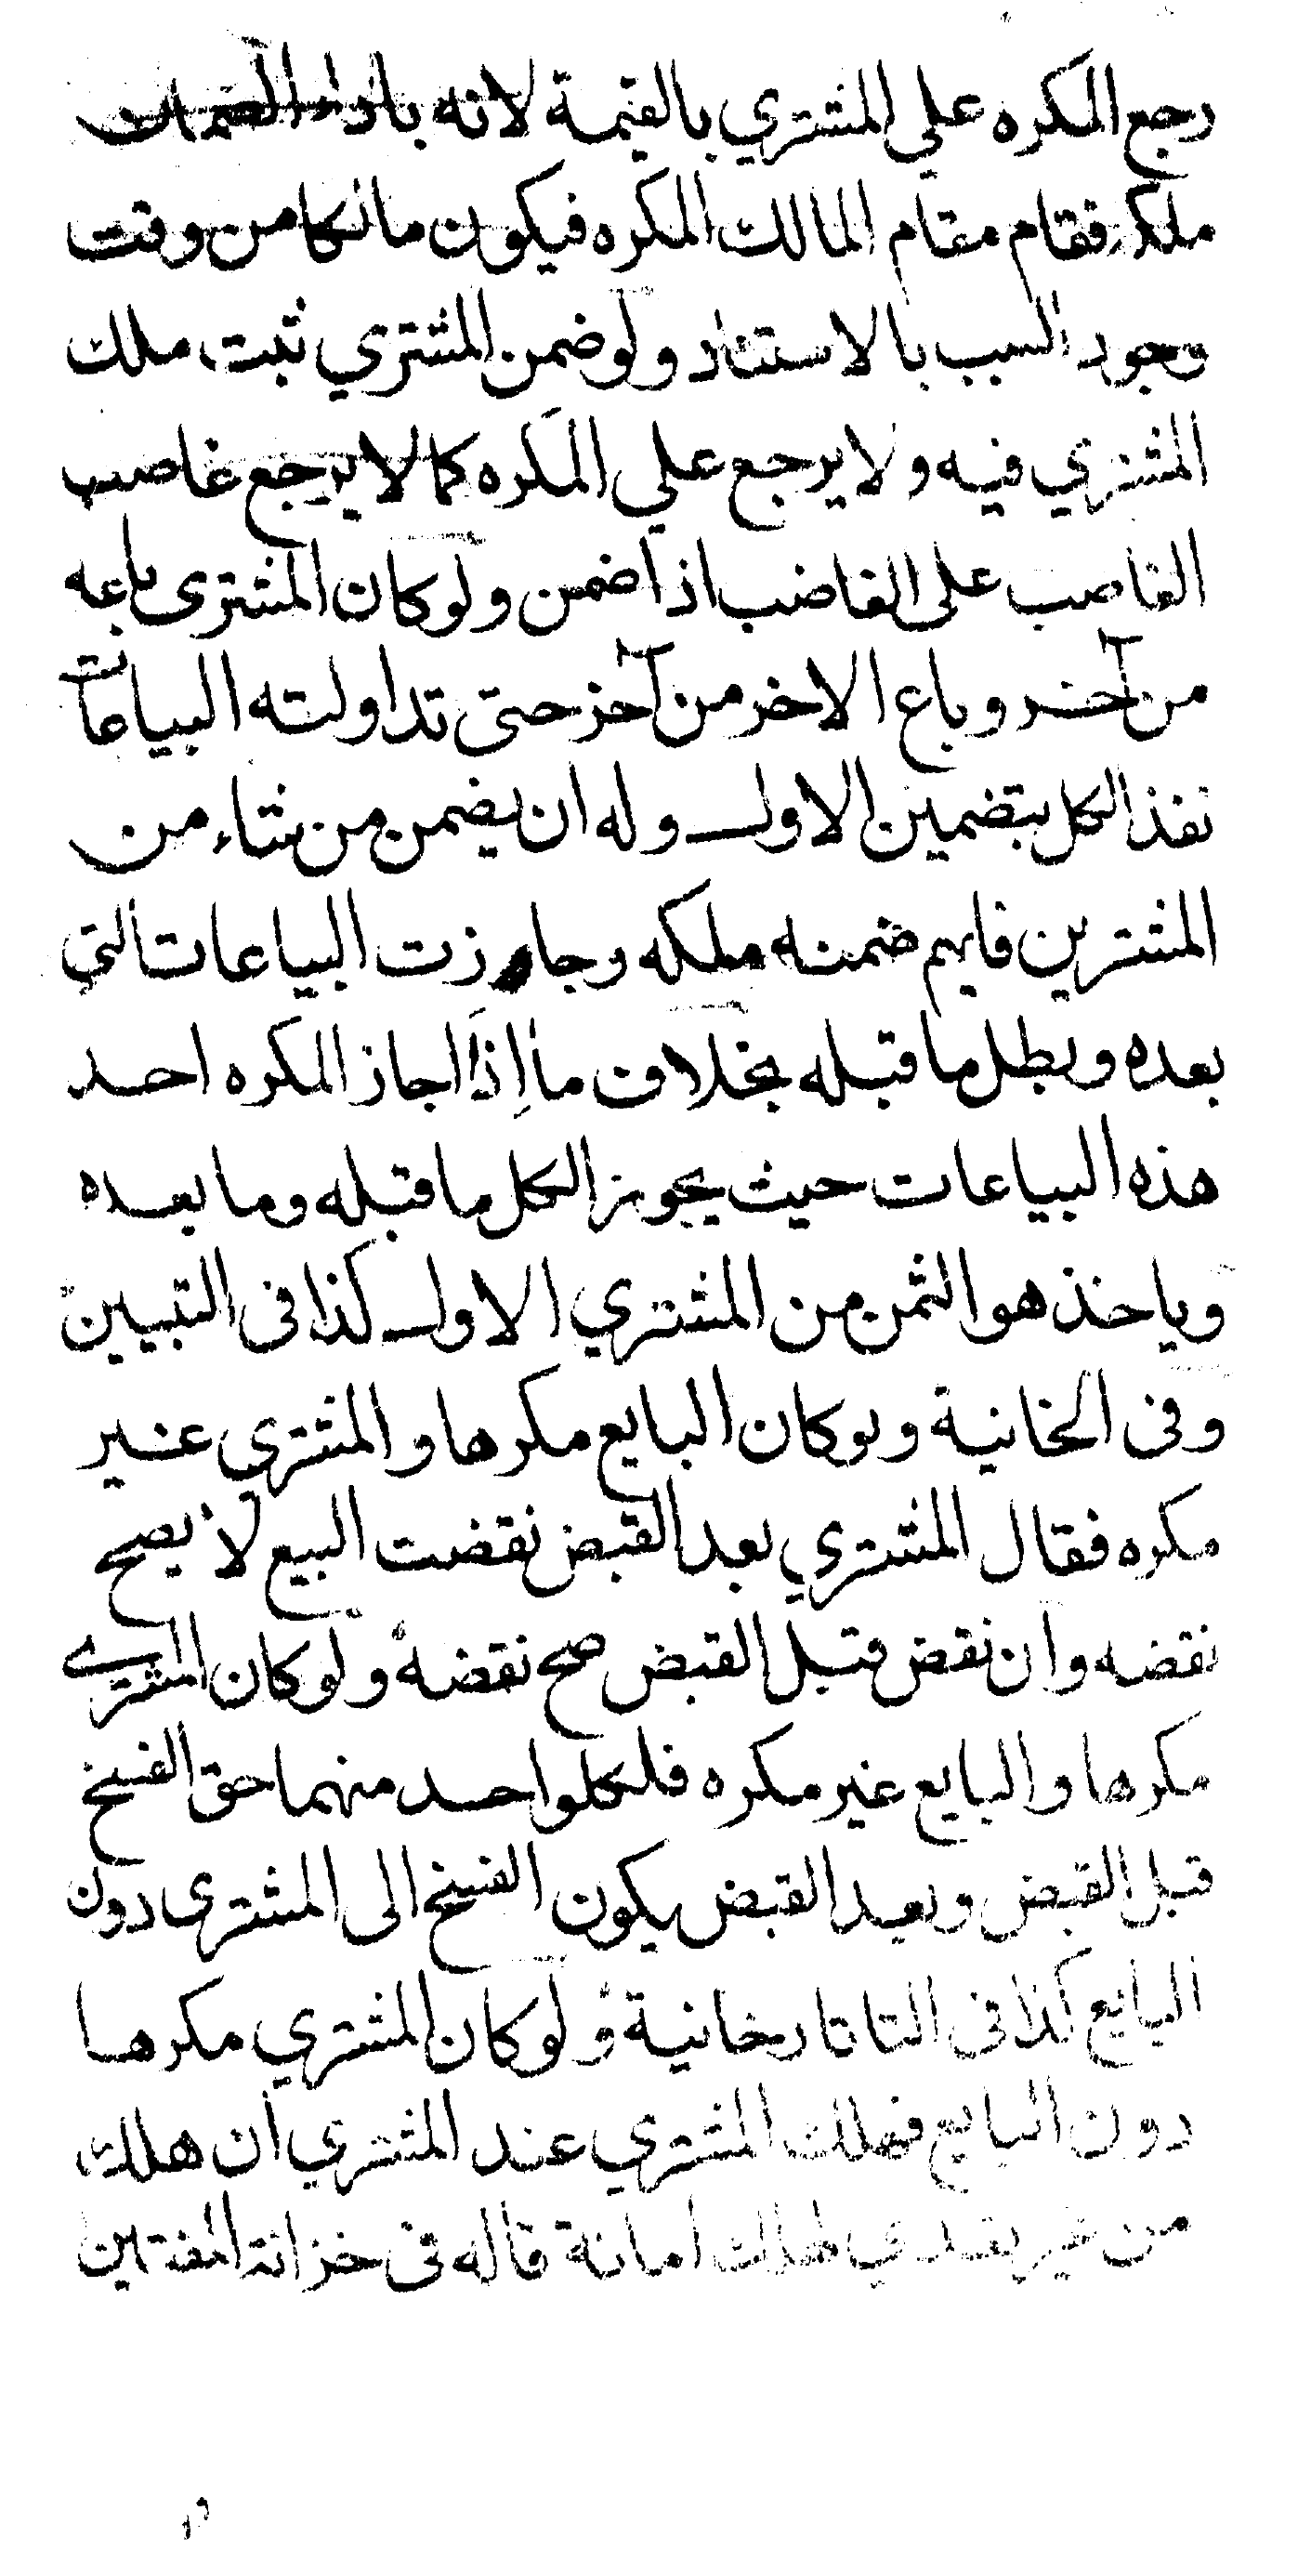 رجع المكره علي المشتري بالقيمة لانه باداء الضمان
ملكه فقام مقام المالك المكره فيكون مالكا من وقت
وجود السبب بالاستناد ولو ضمن المشتري ثبت ملك
المشتري فيه ولا يرجع علي المكره كما لا يرجع غاصب
الغاصب على الغاصب اذا ضمن ولو كان المشترى باعه
من آخر وباع الاخر من آخر حتى تداولته البياعات
نفذ الكل بتضمين الاول وله ان يضمن من شاء من
المشترين فايهم ضمنه ملكه وجازت البياعات التي
بعده وبطل ما قبله بخلاف ما إذا اجاز المكره احد
هذه البياعات حيث يجوز الكل ما قبله وما بعده
وياخذ هو الثمن من المشتري الاول كذا فى التبيين
وفى الخانية ولو كان البايع مكرها والمشتري غير
مكره فقال المشتري بعد القبض نقضت البيع لا يصح
نقضه وان نقض قبل القبض صح نقضه ولو كان المشتري
مكرها والبايع غير مكره فلكلواحد منهما حق الفسخ
قبل القبض وبعد القبض يكون الفسخ الى المشترى دون
البايع كذا فى التاتارخانية ولو كان المشتري مكرها
دون البايع فهلك المشتري عند المشتري ان هلك
من غير تعدي هلك امانة قاله فى خزانة المفتين